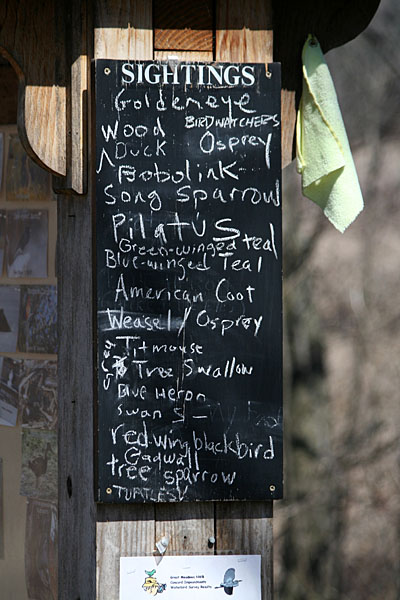 SIGHTINGS
Goldeneye
BIRDWATCHERS
Wood Duck
Osprey
Bobolink
Song Sparrow
Pilatus
Green-winged teal
Blue-winged Teal
American Coot
Weasel / Osprey
Titmouse
Tree Swallow
Blue Heron
Swan S
red wing blackbird
Gadwall
tree sparrow
TURTLES
Great Meadows NWR
Concord Impoundments
Waterbird Survey Results